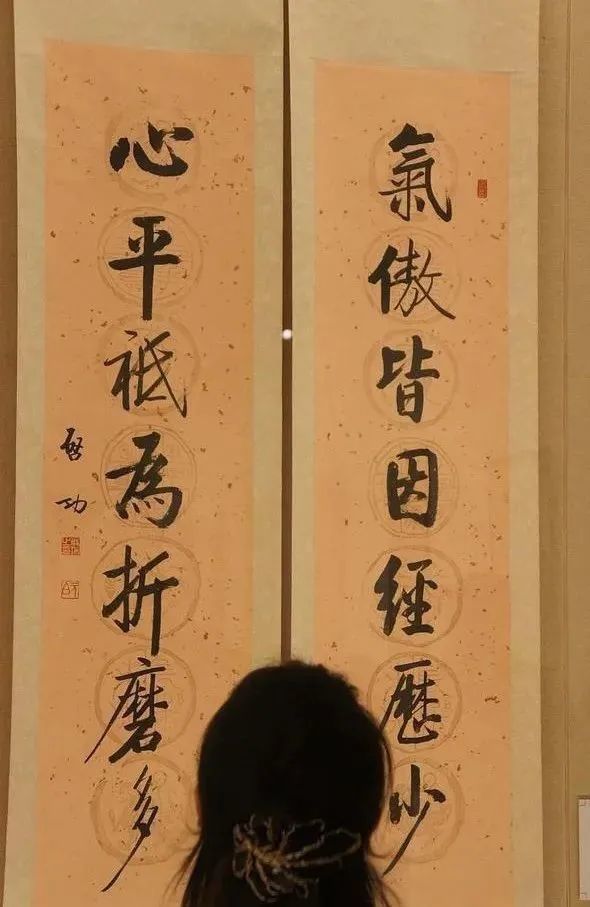 氣傲皆因經歷少
心平祗為折磨多
啓功